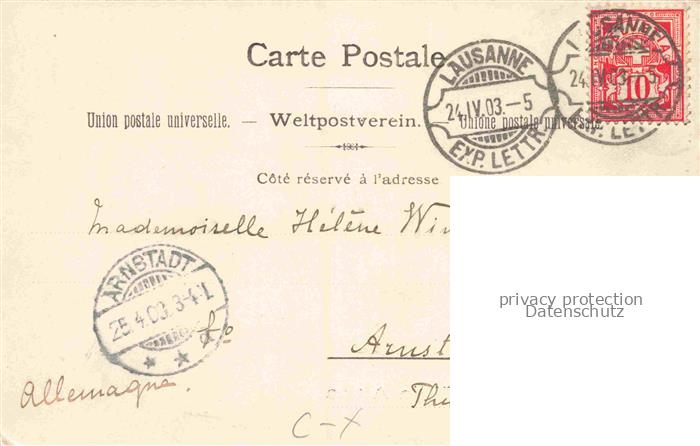 Carte Postale
LAUSANNE
24.IV.03.-5
EXP. LETTR.
LAUSANNE
24.IV.03.-5
EXP. LETTR.
10
Union postale universelle. — Weltpostverein. — Unione postale universale.
Côté réservé à l'adresse
Mademoiselle Hélène Win
privacy protection
Datenschutz
ARNSTADT
25.4.03.3-4N.
Arnst
Allemagne.
Thü
C-X